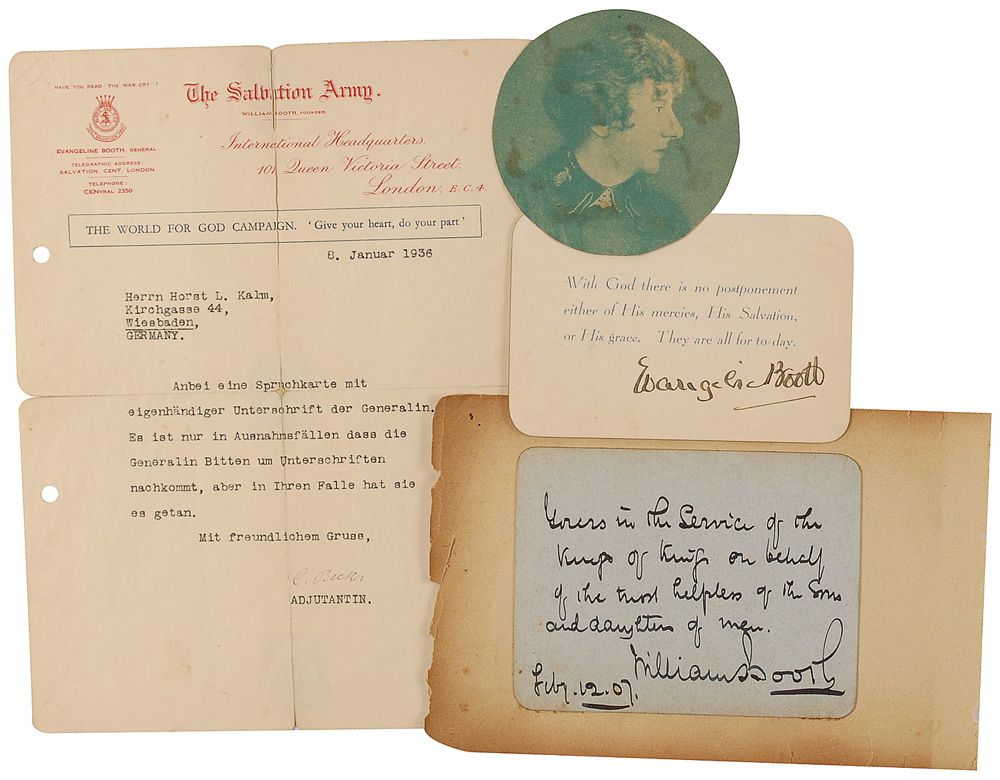 HAVE YOU READ "THE WAR CRY"?
The Salvation Army.
WILLIAM BOOTH, FOUNDER.
International Headquarters,
101 Queen Victoria Street,
London, E.C.4.
EVANGELINE BOOTH, GENERAL
TELEGRAPHIC ADDRESS:
SALVATION, CENT, LONDON
TELEPHONE:
CENTRAL 2350
THE WORLD FOR GOD CAMPAIGN. 'Give your heart, do your part'
8. Januar 1936
Herrn Horst L. Kalm,
Kirchgasse 44,
Wiesbaden,
GERMANY.
Anbei eine Spruchkarte mit
eigenhändiger Unterschrift der Generalin.
Es ist nur in Ausnahmsfällen dass die
Generalin Bitten um Unterschriften
nachkommt, aber in Ihren Falle hat sie
es getan.
Mit freundlichem Gruss,
C. Becker
ADJUTANTIN.
With God there is no postponement
either of His mercies, His Salvation,
or His grace. They are all for to-day.
Evangeline Booth
Yours in the Service of the
King of Kings on behalf
of the most helpless of the Sons
and daughters of men.
William Booth
Feby. 12. 07.